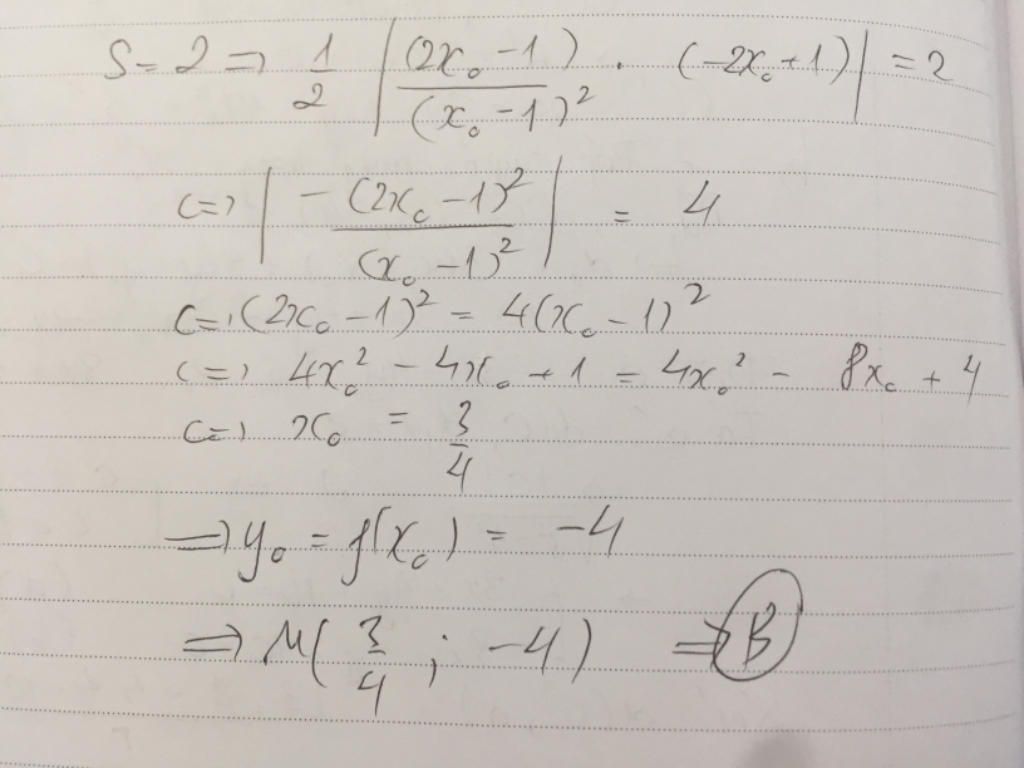 S = 2 => 1/2 |(2x₀ - 1)/(x₀ - 1)² . (-2x₀ + 1)| = 2
<=> |-(2x₀ - 1)²/(x₀ - 1)²| = 4
<=> (2x₀ - 1)² = 4(x₀ - 1)²
<=> 4x₀² - 4x₀ + 1 = 4x₀² - 8x₀ + 4
<=> x₀ = 3/4
=> y₀ = f(x₀) = -4
=> M(3/4 ; -4) => B